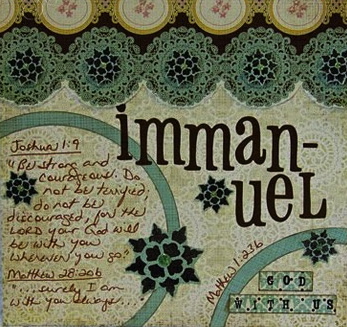 imman-
uel
Joshua 1:9
"Be strong and
courageous. Do
not be terrified;
do not be
discouraged, for the
LORD your God will
be with you
wherever you go."
Matthew 28:20b
"...surely I am
with you always..."
Matthew 1:23b
GOD
WITH US